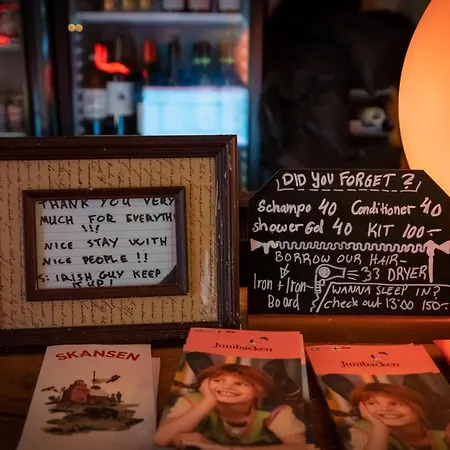 THANK YOU VERY
MUCH FOR EVERYTHING
!!!
NICE STAY WITH
NICE PEOPLE !!
S: IRISH GUY KEEP
IT UP!
DID YOU FORGET?
Schampo 40 Conditioner 40
Shower Gel 40 KIT 100:-
BORROW OUR HAIR-
DRYER
Iron + Iron
Board
WANNA SLEEP IN?
check out 13:00 150:-
SKANSEN
Junibacken
Junibacken